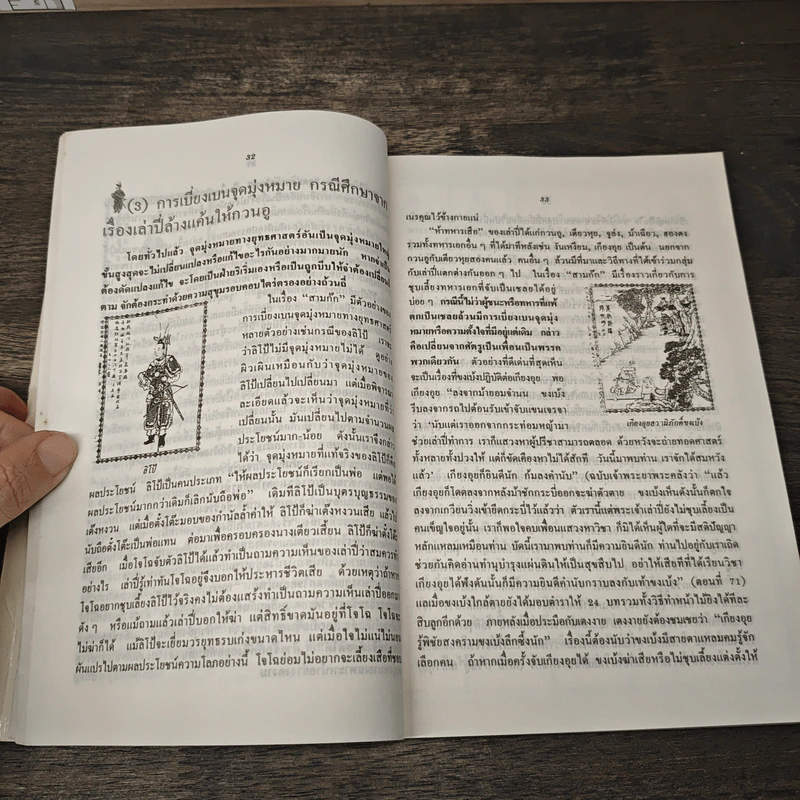 32
(3) การเบี่ยงเบนจุดมุ่งหมาย กรณีศึกษาจาก
เรื่องเล่าปี่ล้างแค้นให้กวนอู
โดยทั่วไปแล้ว จุดมุ่งหมายทางยุทธศาสตร์อันเป็นจุดมุ่งหมายใหญ่
ขั้นสูงสุดจะไม่เปลี่ยนแปลงหรือแก้ไขอะไรกันอย่างมากมายนัก หากจำเป็น
ต้องดัดแปลงแก้ไข จะโดยเป็นฝ่ายริเริ่มเองหรือเป็นถูกบีบให้จำต้องเปลี่ยนก็
ตาม จักต้องกระทำด้วยความสุขุมรอบคอบไตร่ตรองอย่างถ้วนถี่
ในเรื่อง “สามก๊ก” มีตัวอย่างของ
การเบี่ยงเบนจุดมุ่งหมายทางยุทธศาสตร์
หลายตัวอย่างเช่นกรณีของลิโป้ เราจะ
ว่าลิโป้ไม่มีจุดมุ่งหมายไม่ได้ ดูอย่าง
ผิวเผินเหมือนกับว่าจุดมุ่งหมายของ
ลิโป้เปลี่ยนไปเปลี่ยนมา แต่เมื่อพิจารณา
ละเอียดแล้วจะเห็นว่าจุดมุ่งหมายที่ว่า
เปลี่ยนนั้น มันเปลี่ยนไปตามจำนวนผล
ประโยชน์มาก-น้อย ดังนั้นเราจึงกล่าว
ได้ว่า จุดมุ่งหมายที่แท้จริงของลิโป้ก็คือ
ลิโป้
ผลประโยชน์ ลิโป้เป็นคนประเภท “ให้ผลประโยชน์ก็เรียกเป็นพ่อ แต่พอได้
ผลประโยชน์มากกว่าเดิมก็เลิกนับถือพ่อ” เดิมทีลิโป้เป็นบุตรบุญธรรมของ
เต๊งหงวน แต่เมื่อตั๋งโต๊ะมอบของกำนัลล้ำค่าให้ ลิโป้ก็ฆ่าเต๊งหงวนเสีย แล้วไป
นับถือตั๋งโต๊ะเป็นพ่อแทน ต่อมาเพื่อครอบครองนางเตียวเสี้ยน ลิโป้ก็ฆ่าตั๋งโต๊ะ
เสียอีก เมื่อโจโฉจับตัวลิโป้ได้แล้วทำเป็นถามความเห็นของเล่าปี่ว่าสมควรทำ
อย่างไร เล่าปี่รู้เท่าทันโจโฉอยู่จึงบอกให้ประหารชีวิตเสีย ด้วยเหตุว่าถ้าหาก
โจโฉอยากชุบเลี้ยงลิโป้ไว้จริงคงไม่ต้องแสร้งทำเป็นถามความเห็นเล่าปี่ออกมา
ดัง ๆ หรือแม้ถามแล้วเล่าปี่บอกให้ฆ่า แต่สิทธิ์ขาดมันอยู่ที่โจโฉ โจโฉจะ
ไม่ฆ่าก็ได้ แม้ลิโป้จะเยี่ยมวรยุทธรบเก่งขนาดไหน แต่เมื่อใจไม่แน่ไม่นอน
ผันแปรไปตามผลประโยชน์ความโลภอย่างนี้ โจโฉย่อมไม่อยากจะเลี้ยงเสือที่
33
เนรคุณไว้ข้างกายแน่
“ห้าทหารเสือ” ของเล่าปี่ได้แก่กวนอู, เตียวหุย, จูล่ง, ม้าเฉียว, ฮองตง
รวมทั้งทหารเอกอื่น ๆ ที่ได้มาทีหลังเช่น งันเหงียน, เกียงอุย เป็นต้น นอกจาก
กวนอูกับเตียวหุยสองคนแล้ว คนอื่น ๆ ล้วนมีที่มาและวิธีทางที่ได้เข้าร่วมกลุ่ม
กับเล่าปี่แตกต่างกันออก ๆ ไป ในเรื่อง “สามก๊ก” มีเรื่องราวเกี่ยวกับการ
ชุบเลี้ยงทหารเอกที่จับเป็นเชลยได้อยู่
บ่อย ๆ กรณีนี้ไม่ว่าผู้ชนะหรือทหารที่แพ้
ตกเป็นเชลยล้วนมีการเบี่ยงเบนจุดมุ่ง
หมายหรือความตั้งใจที่มีอยู่แต่เดิม กล่าว
คือเปลี่ยนจากศัตรูเป็นเพื่อนเป็นพรรค
พวกเดียวกัน ตัวอย่างที่ดีเด่นที่สุดเห็น
จะเป็นเรื่องที่ขงเบ้งปฏิบัติต่อเกียงอุย พอ
เกียงอุย “ลงจากม้ายอมจำนน ขงเบ้ง
รีบลงจากรถไปต้อนรับเข้าจับแขนเจรจา
ว่า ‘นับแต่เราออกจากกระท่อมหญ้ามา
เกียงอุยสวามิภักดิ์ขงเบ้ง
ช่วยเล่าปี่ทำการ เราก็แสวงหาผู้ปรีชาสามารถตลอด ด้วยหวังจะถ่ายทอดศาสตร์
ทั้งหลายทั้งปวงให้ แต่ก็ขัดเคืองหาไม่ได้สักที วันนี้มาพบท่าน เราจักได้สมหวัง
แล้ว’ เกียงอุยก็ยินดีนัก ก้มลงคำนับ” (ฉบับเจ้าพระยาพระคลังว่า “แล้ว
เกียงอุยก็โดดลงจากหลังม้าชักกระบี่ออกจะฆ่าตัวตาย ขงเบ้งเห็นดังนั้นก็ตกใจ
ลงจากเกวียนวิ่งเข้ายึดกระบี่ไว้แล้วว่า ตัวเรานี้แต่พระเจ้าเล่าปี่ยังไม่ชุบเลี้ยงเป็น
คนเข็ญใจอยู่นั้น เราก็พอใจคบเพื่อนแสวงหาวิชา ก็มิได้เห็นผู้ใดที่จะมีสติปัญญา
หลักแหลมเหมือนท่าน บัดนี้เรามาพบท่านก็มีความยินดีนัก ท่านไปอยู่กับเราเถิด
ช่วยกันคิดอ่านทำนุบำรุงแผ่นดินให้เป็นสุขสืบไป อย่าให้เสียทีที่ได้เรียนวิชา
เกียงอุยได้ฟังดันนั้นก็มีความยินดีคำนับกราบลงกับเท้าขงเบ้ง” (ตอนที่ 71)
แลเมื่อขงเบ้งใกล้ตายยังได้มอบตำราให้ 24 บทรวมทั้งวิธีทำหน้าไม้ยิงได้ทีละ
สิบลูกอีกด้วย ภายหลังเมื่อประมือกับเตงงาย เตงงายยังต้องชมเชยว่า “เกียงอุย
รู้พิชัยสงครามขงเบ้งลึกซึ้งนัก” เรื่องนี้ต้องนับว่าขงเบ้งมีสายตาแหลมคมรู้จัก
เลือกคน ถ้าหากเมื่อครั้งจับเกียงอุยได้ ขงเบ้งฆ่าเสียหรือไม่ชุบเลี้ยงแต่งตั้งให้